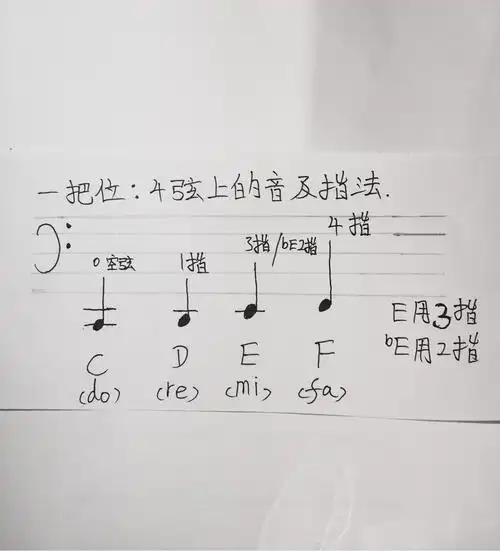 一把位:4弦上的音及指法.
0空弦 1指 3指/bE2指 4指
E用3指
bE用2指
C D E F
(do) (re) (mi) (fa)